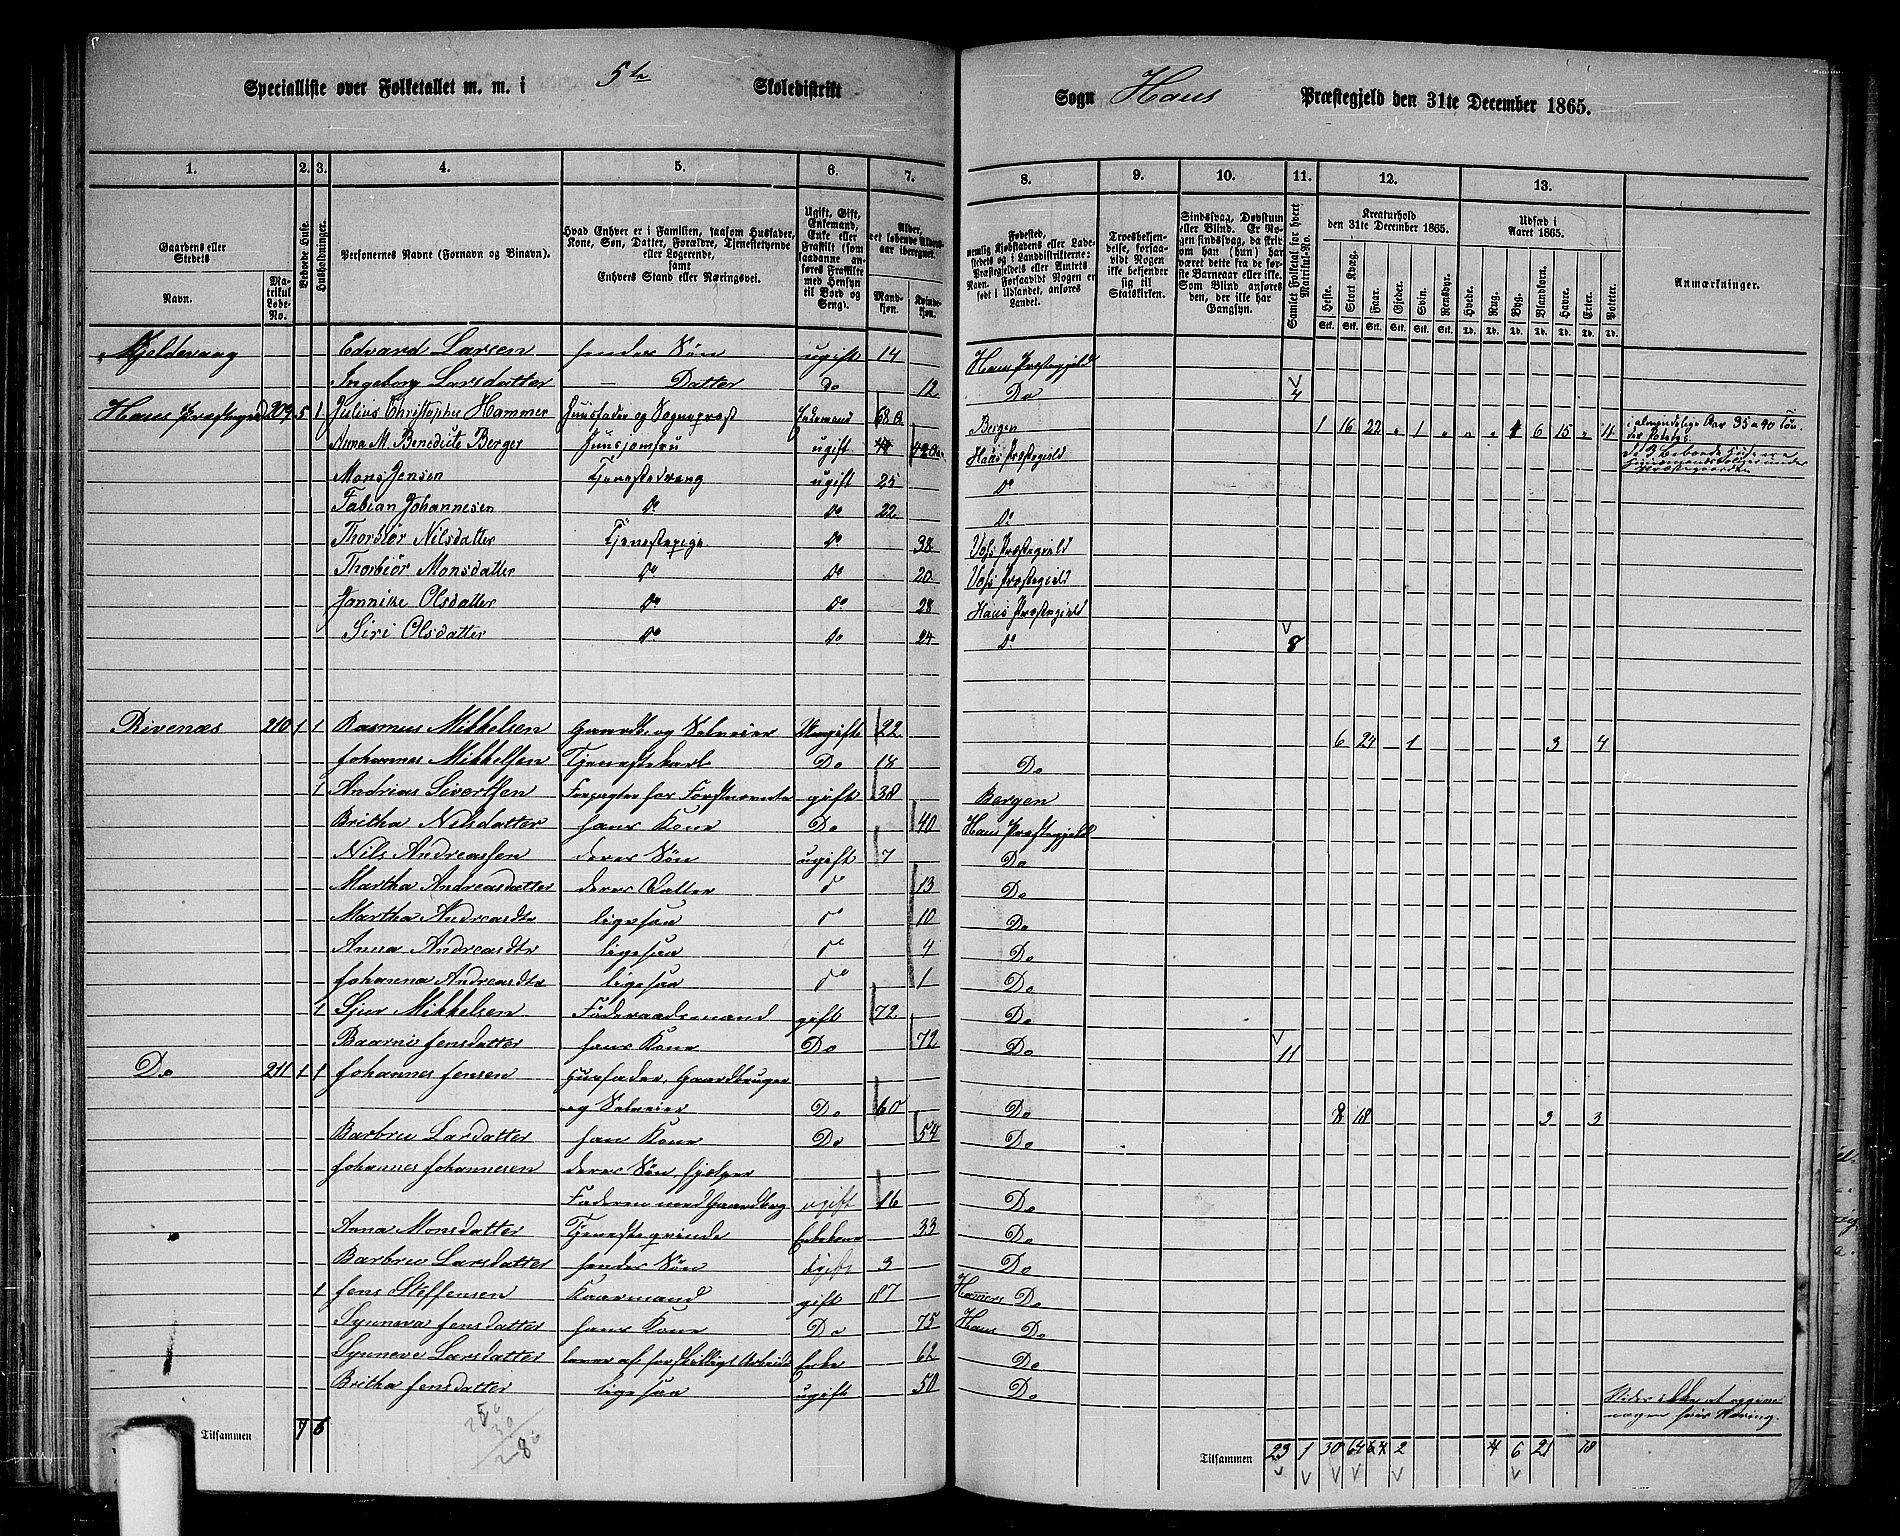 Specialliste over Folketallet m. m. i 5te Skoledistrikt
Sogn Haus Præstegjeld den 31te December 1865.
1. 2. 3. 4. 5. 6. 7. 8. 9. 10. 11. 12. 13.
Gaardens eller Stedets
Navn.
Matrikul Løbe-No.
Beboede Huse.
Husholdninger.
Personernes Navne (Fornavn og Binavn).
Hvad Enhver er i Familien, saasom Husfader,
Kone, Søn, Datter, Forældre, Tjenestetyende
eller Logerende,
samt
Enhvers Stand eller Næringsvei.
Ugift, Gift,
Enkemand,
Enke eller
Fraskilt (som
saadanne anføres
Fraskilte
med Hensyn
til Bord og
Seng).
Alder,
det løbende Aldersaar
iberegnet.
Mandkjøn.
Kvindekjøn.
Fødested,
nemlig Kjøbstadens eller Ladestedets
og i Landdistrikterne:
Præstegjeldets eller Amtets
Navn. Forsaavidt Nogen er
født i Udlandet, anføres
Landet.
Troesbekjendelse,
forsaavidt
Nogen ikke
bekjender
sig til
Statskirken.
Sindssvag, Døvstum
eller Blind. Er Nogen
sindssvag, da skrives
om han (hun) har
været dette fra de første
Barneaar eller ikke.
Som Blind anføres
den, der ikke har
Gangsyn.
Samlet Folketal for hvert Matrikul-No.
Kreaturhold
den 31te December 1865.
Heste. Stort Kvæg. Faar. Gjeder. Svin. Rensdyr.
Stk. Stk. Stk. Stk. Stk. Stk.
Udsæd i
Aaret 1865.
Hvede. Rug. Byg. Blandkorn. Havre. Erter. Poteter.
Td. Td. Td. Td. Td. Td. Td.
Anmærkninger.
Kjeldevaag Edvard Larsen hendes Søn ugift 14 Haus Præstegjeld
Ingeborg Larsdatter — Datter Do 12 Do 4
Haus Præstegaard 209 5 1 Julius Christopher Hammer Huusfader og Sognepræst Enkemand 68 Bergen 1 16 22 „ 1 „ „ „ 6 15 „
Anna M. Benedicte Berger Huusjomfru ugift Haus Præstegield
Mons Jensen Tjenestedreng ugift 25 Do
Fabian Johannesen Do Do 22 Do
Thorbiør Nilsdatter Tjenestepige Do 38 Vofs Præstegield
Thorbiør Monsdatter Do Do 20 Vofs Præstegield
Jannike Olsdatter Do Do 28 Haus Præstegield
Siri Olsdatter Do Do 24 Do 8
Rivenæs 210 1 1 Rasmus Mikkelsen Gaardb. og Selveier 22 6 24 1 3 4
Johannes Mikkelsen Tjenestekarl Do 18 Do
1 Andreas Sivertsen gift 38 Bergen
Britha Nilsdatter hans Kone Do 40 Haus Præstegjeld
Nils Andreassen deres Søn ugift 7 Do
Martha Andreasdatter deres Datter do 13 Do
Martha Andreasdtr ligesaa do 10 Do
Anna Andreasdtr ligesaa do 4 Do
Johanna Andreasdtr ligesaa do 1 Do
1 Sjur Mikkelsen Føderaadsmand gift 72 Do
Baarni Jensdatter hans Kone Do 72 Do 11
Do 211 1 1 Johannes Jensen Huusfader, Gaardbruger
og Selveier Do 60 Do 8 18 3 3
Barbru Larsdatter hans Kone Do 54 Do
Johannes Johannesen deres Søn, hjelper
Faderen med Gaardbrug ugift 16 Do
Anna Monsdatter Tjenesteqvinde 33 Do
Barbru Larsdatter hendes Søn Ugift 3 Do
1 Jens Steffensen Kaarmand gift 87 Hamers Do
Synneva Jensdatter hans Kone Do 75 Haus Do
Synneve Larsdatter lever af forskelligt Arbeide Enke 62 Do
Britha Jensdatter ligesaa ugift 50 Do
Tilsammen 7 6
Tilsammen 23 1 30 64 2 4 6 21 18